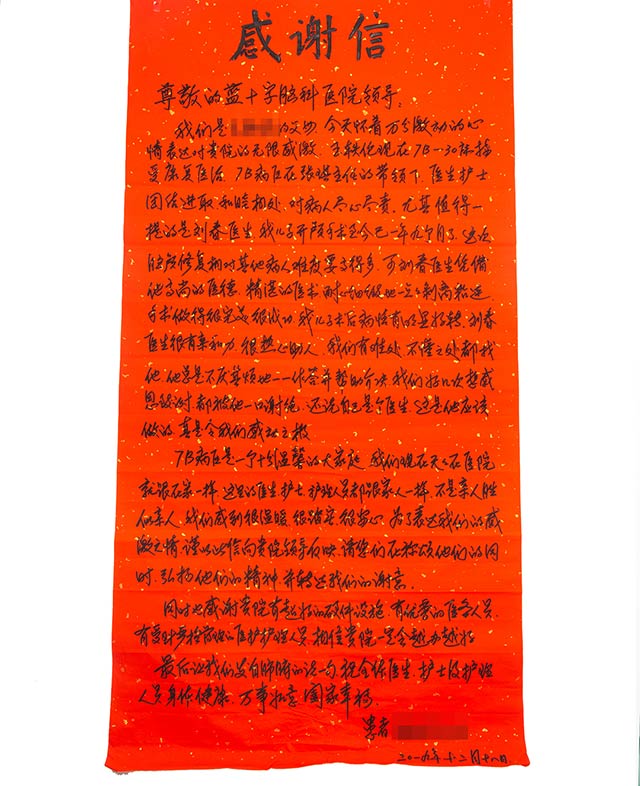 感谢信
尊敬的蓝十字脑科医院领导：
我们是 的父母，今天怀着万分激动的心
情表达对贵院的无限感激。 现在7B-30床接
受康复医治。7B病区在张 主任的带领下，医生护士
团结进取，和睦相处，对病人尽心尽责，尤其值得一
提的是刘春医生，我儿子开颅手术至今已一年九个月了，这次
脑部修复相对其他病人难度要高得多，可刘春医生凭借
他高尚的医德，精湛的医术，耐心细致地一点点剥离粘连，
手术做得很完美，很成功，我儿子术后病情有明显好转，刘春
医生很有亲和力，很热心助人，我们有难处、不懂之处都找
他，他总是不厌其烦地一一作答并帮助介决，我们好几次想感
恩致谢时都被他一口谢绝，还说自己是个医生，这是他应该
做的，真是令我们感动之极
7B病区是一个十分温馨的大家庭，我们现在天天在医院
就跟在家一样，这里的医生护士、护理人员都跟家人一样，不是亲人胜
似亲人，我们感到很温暖，很踏实，很安心，为了表达我们的感
激之情，谨以此信向贵院领导反映，请您们在称颂他们的同
时，弘扬他们的精神并转达我们的谢意。
同时也感谢贵院有超好的硬件设施，有优秀的医务人员，
有 严格 的医护护理人员，相信贵院一定会越办越好
最后让我们发自肺腑的说一句，祝全体医生、护士及护理
人员身体健康，万事如意，阖家幸福。
患者
二〇一九年十二月十八日